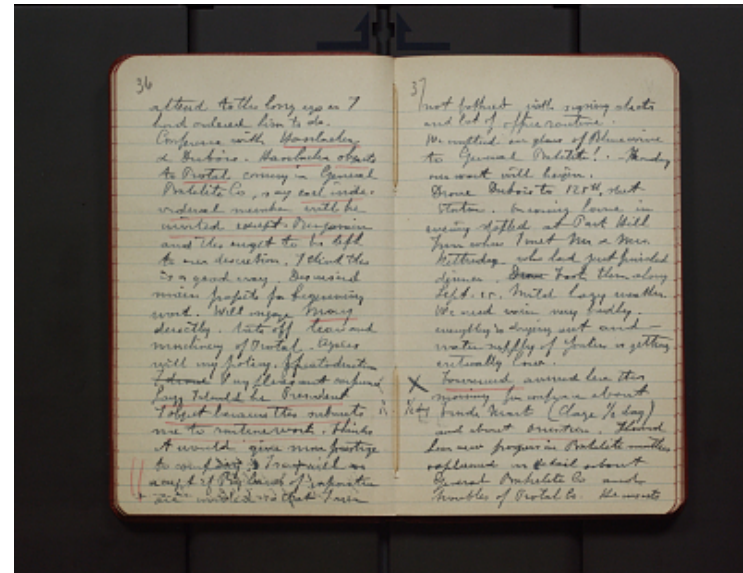 36
attend to this long ago as I
had ordered him to do.
Conference with Hasslacher
& Dubois. Hasslacher objects
to Protal coming in General
Bakelite Co, say each indi-
vidual member will be
invited except Benjamin
and this ought to be left
to our discretion. I think this
is a good way. Discussed
main projects for beginning
work. Will engage
directly. Lots off team and
machinery of Protal. Agrees
with my policy.
I object because this submits
me to routine work. Thinks
it would give more prestige
to
accept if
are involved so that I am
37
not bothered with signing checks
and lot of office routine.
We emptied our glass of Rhine wine
to General Bakelite! - Monday
our work will begin.
Drove Dubois to 125th street
station. Coming home in
evening stopped at Park Hill
from where I met Mr & Mrs.
Kittredge who had just finished
dinner. Took them along
Sept. 15. Mild hazy weather.
We need rain very badly.
everything is drying out and
water supply of Yonkers is getting
critically low.
Townsend arrived here this
morning for conference about
1/2 day Trade Mark (Charge 1/2 day)
and about
how new progress in Bakelite matters
explained in detail about
General Bakelite Co and
troubles of Protal Co. He insists